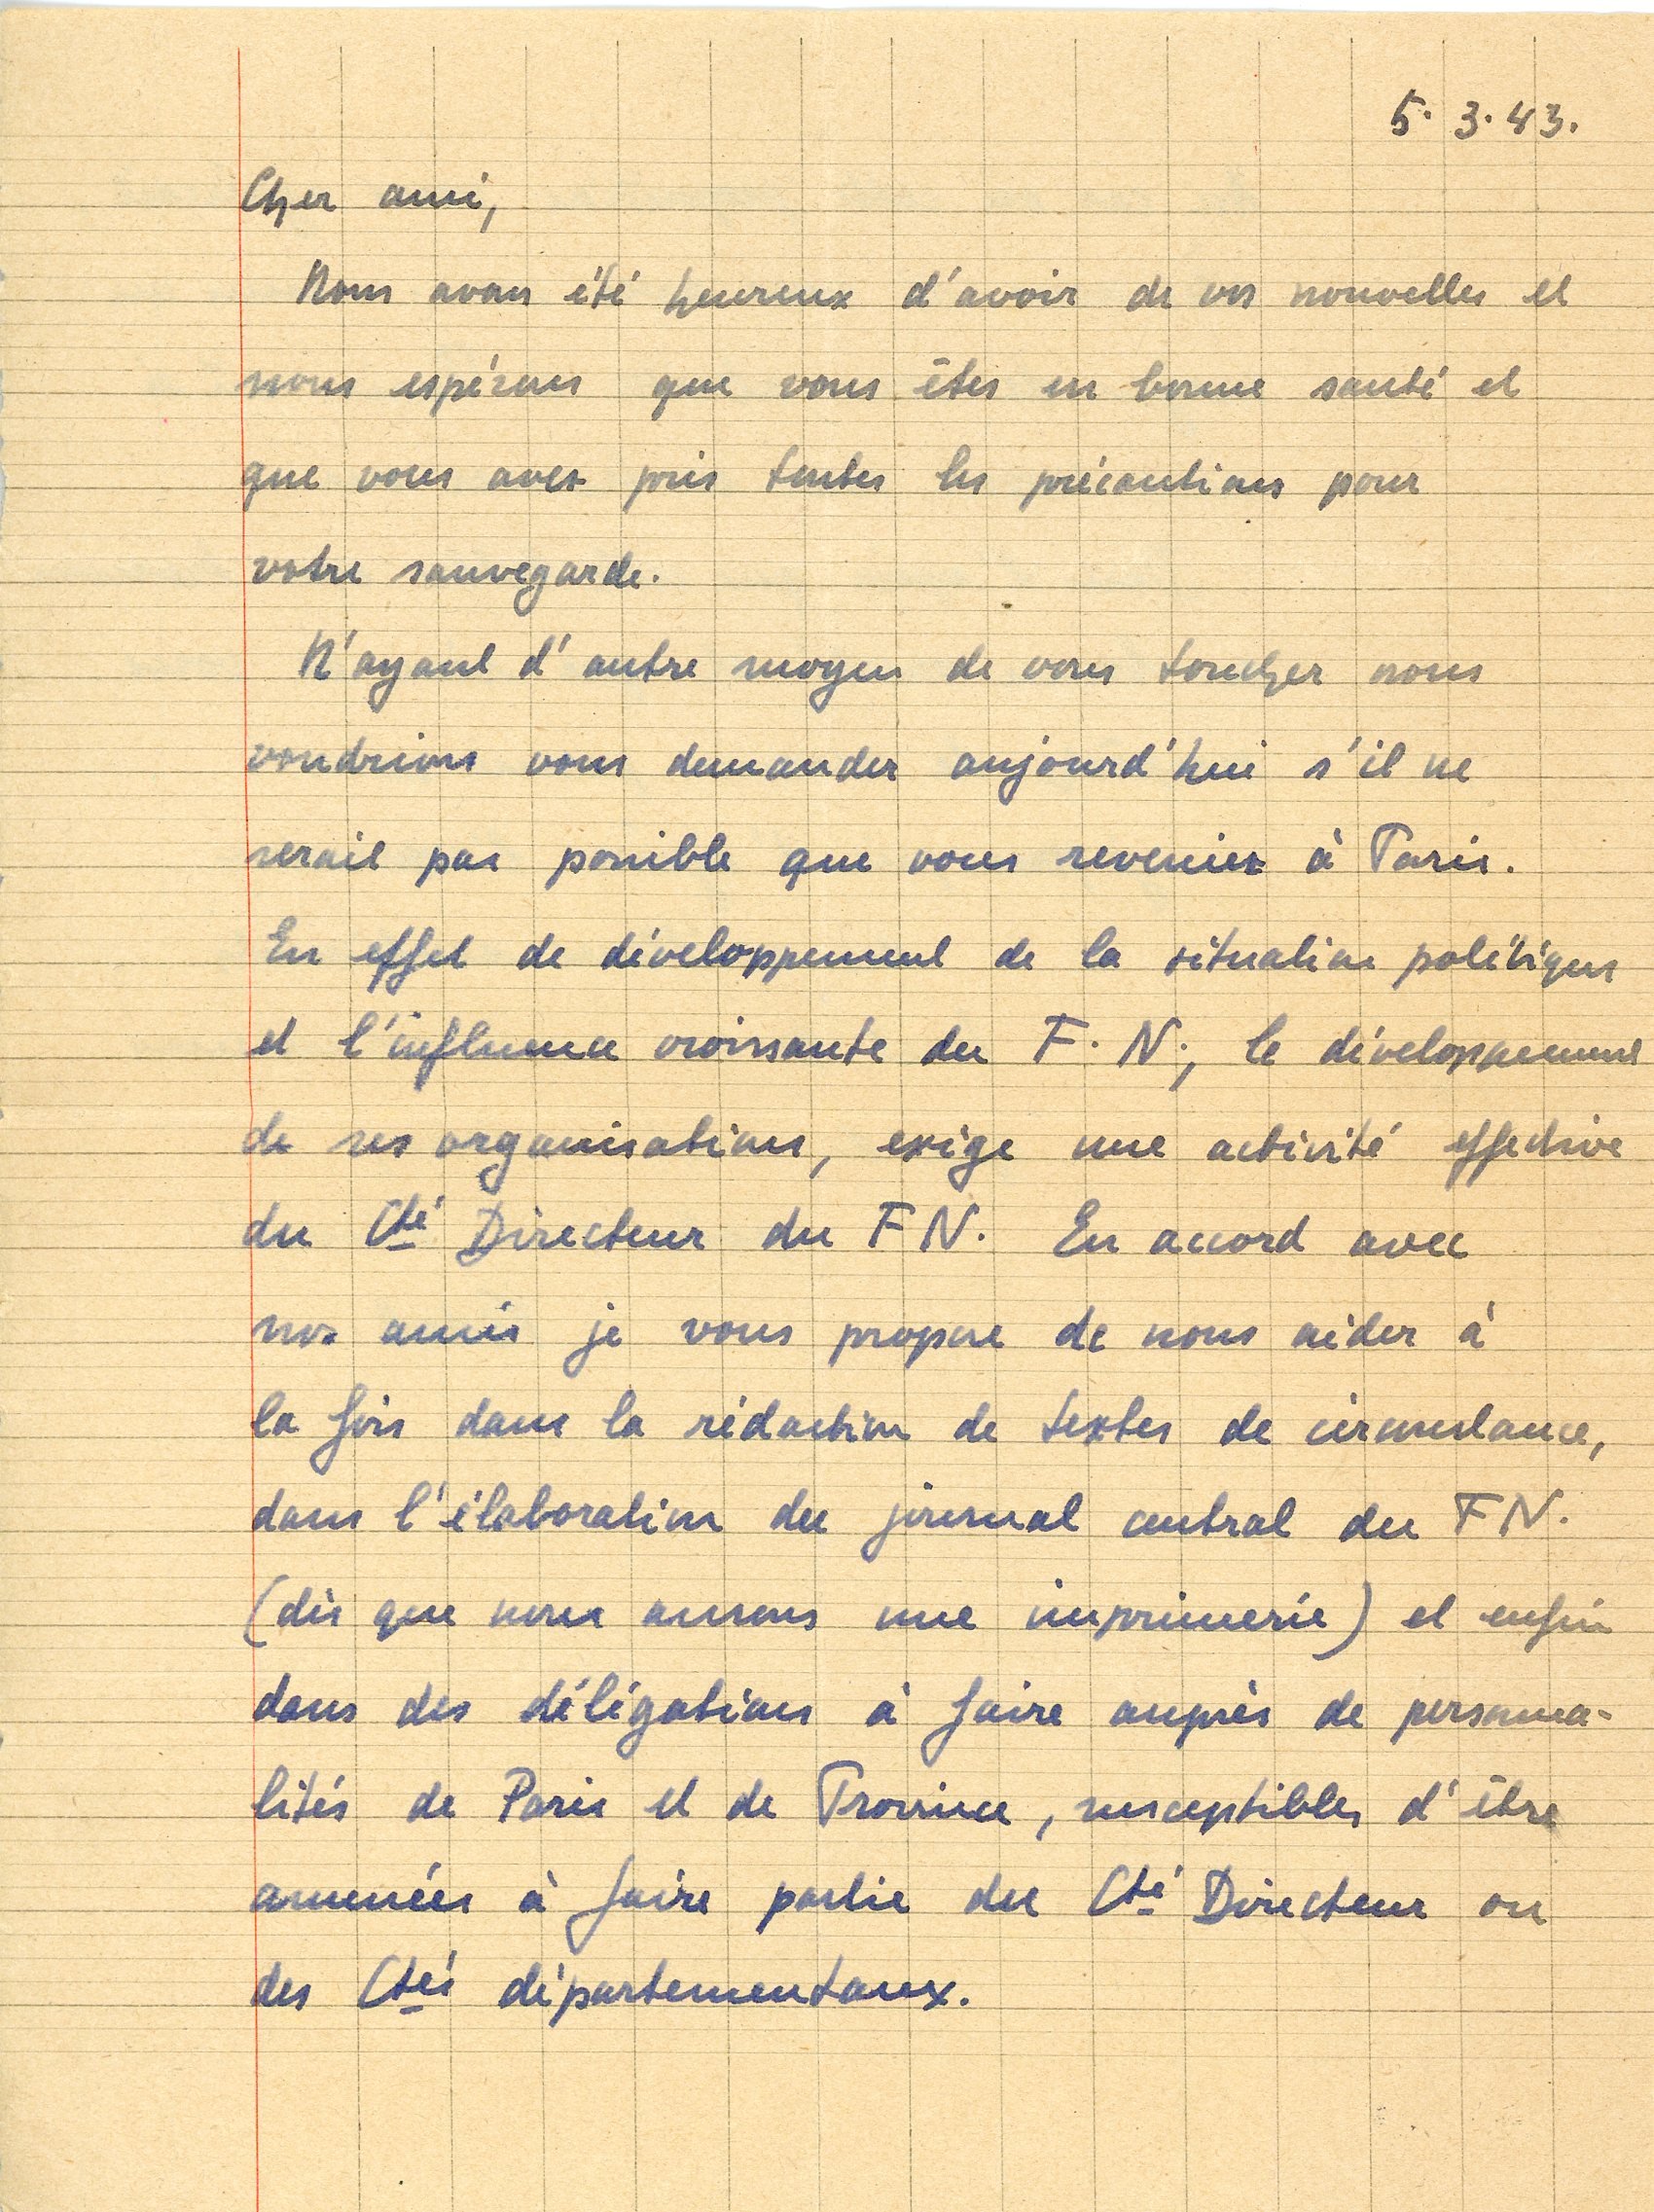 5. 3. 43.
Cher ami,
Nous avons été heureux d'avoir de vos nouvelles et
nous espérons que vous êtes en bonne santé et
que vous avez pris toutes les précautions pour
votre sauvegarde.
N'ayant d'autre moyen de vous toucher nous
voudrions vous demander aujourd'hui s'il ne
serait pas possible que vous reveniez à Paris.
En effet de développement de la situation politique
et l'influence croissante du F. N., le développement
de ses organisations, exige une activité effective
du Cté Directeur du F N. En accord avec
nos amis je vous propose de nous aider à
la fois dans la rédaction de textes de circonstance,
dans l'élaboration du journal central du F N.
(dès que nous aurons une imprimerie) et enfin
dans des délégations à faire auprès de personna-
lités de Paris et de Province, susceptibles d'être
amenées à faire partie du Cté Directeur ou
des Ctés départementaux.